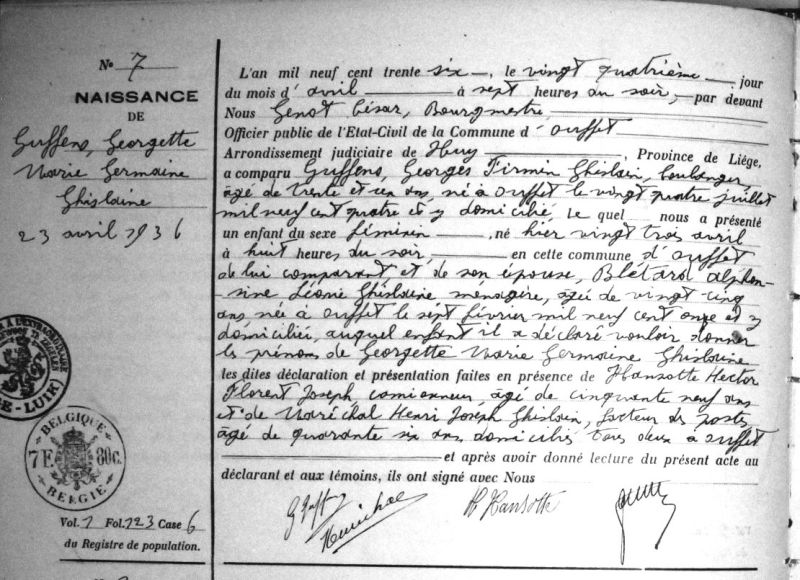 No 7
NAISSANCE
DE
Guffens, Georgette
Marie Germaine
Ghislaine
23 avril 1936
BELGIQUE
7F. 80c.
BELGIË
Vol. 1 Fol. 123 Case 6
du Registre de population.
L'an mil neuf cent trente six, le vingt quatrième jour
du mois d' avril à sept heures du soir, par devant
Nous Genot César, Bourgmestre
Officier public de l'Etat-Civil de la Commune d' Ouffet
Arrondissement judiciaire de Huy, Province de Liége,
a comparu Guffens, Georges Firmin Ghislain, boulanger
âgé de trente et un ans, né à Ouffet le vingt quatre juillet
mil neuf cent quatre et y domicilié, Le quel nous a présenté
un enfant du sexe féminin, né hier vingt trois avril
à huit heures du soir, en cette commune d'Ouffet
de lui comparant et de son épouse, Blétard Alphon-
sine Léonie Ghislaine, ménagère, âgée de vingt cinq
ans née à Ouffet le sept février mil neuf cent onze et y
domiciliée, auquel enfant il a déclaré vouloir donner
les prénoms de Georgette Marie Germaine Ghislaine
les dites déclaration et présentation faites en présence de Hansotte Hector
Florent Joseph, camionneur, âgé de cinquante neuf ans
et de Maréchal Henri Joseph Ghislain, facteur des postes
âgé de quarante six ans, domiciliés tous deux à Ouffet
et après avoir donné lecture du présent acte au
déclarant et aux témoins, ils ont signé avec Nous
Maréchal
H Hansotte